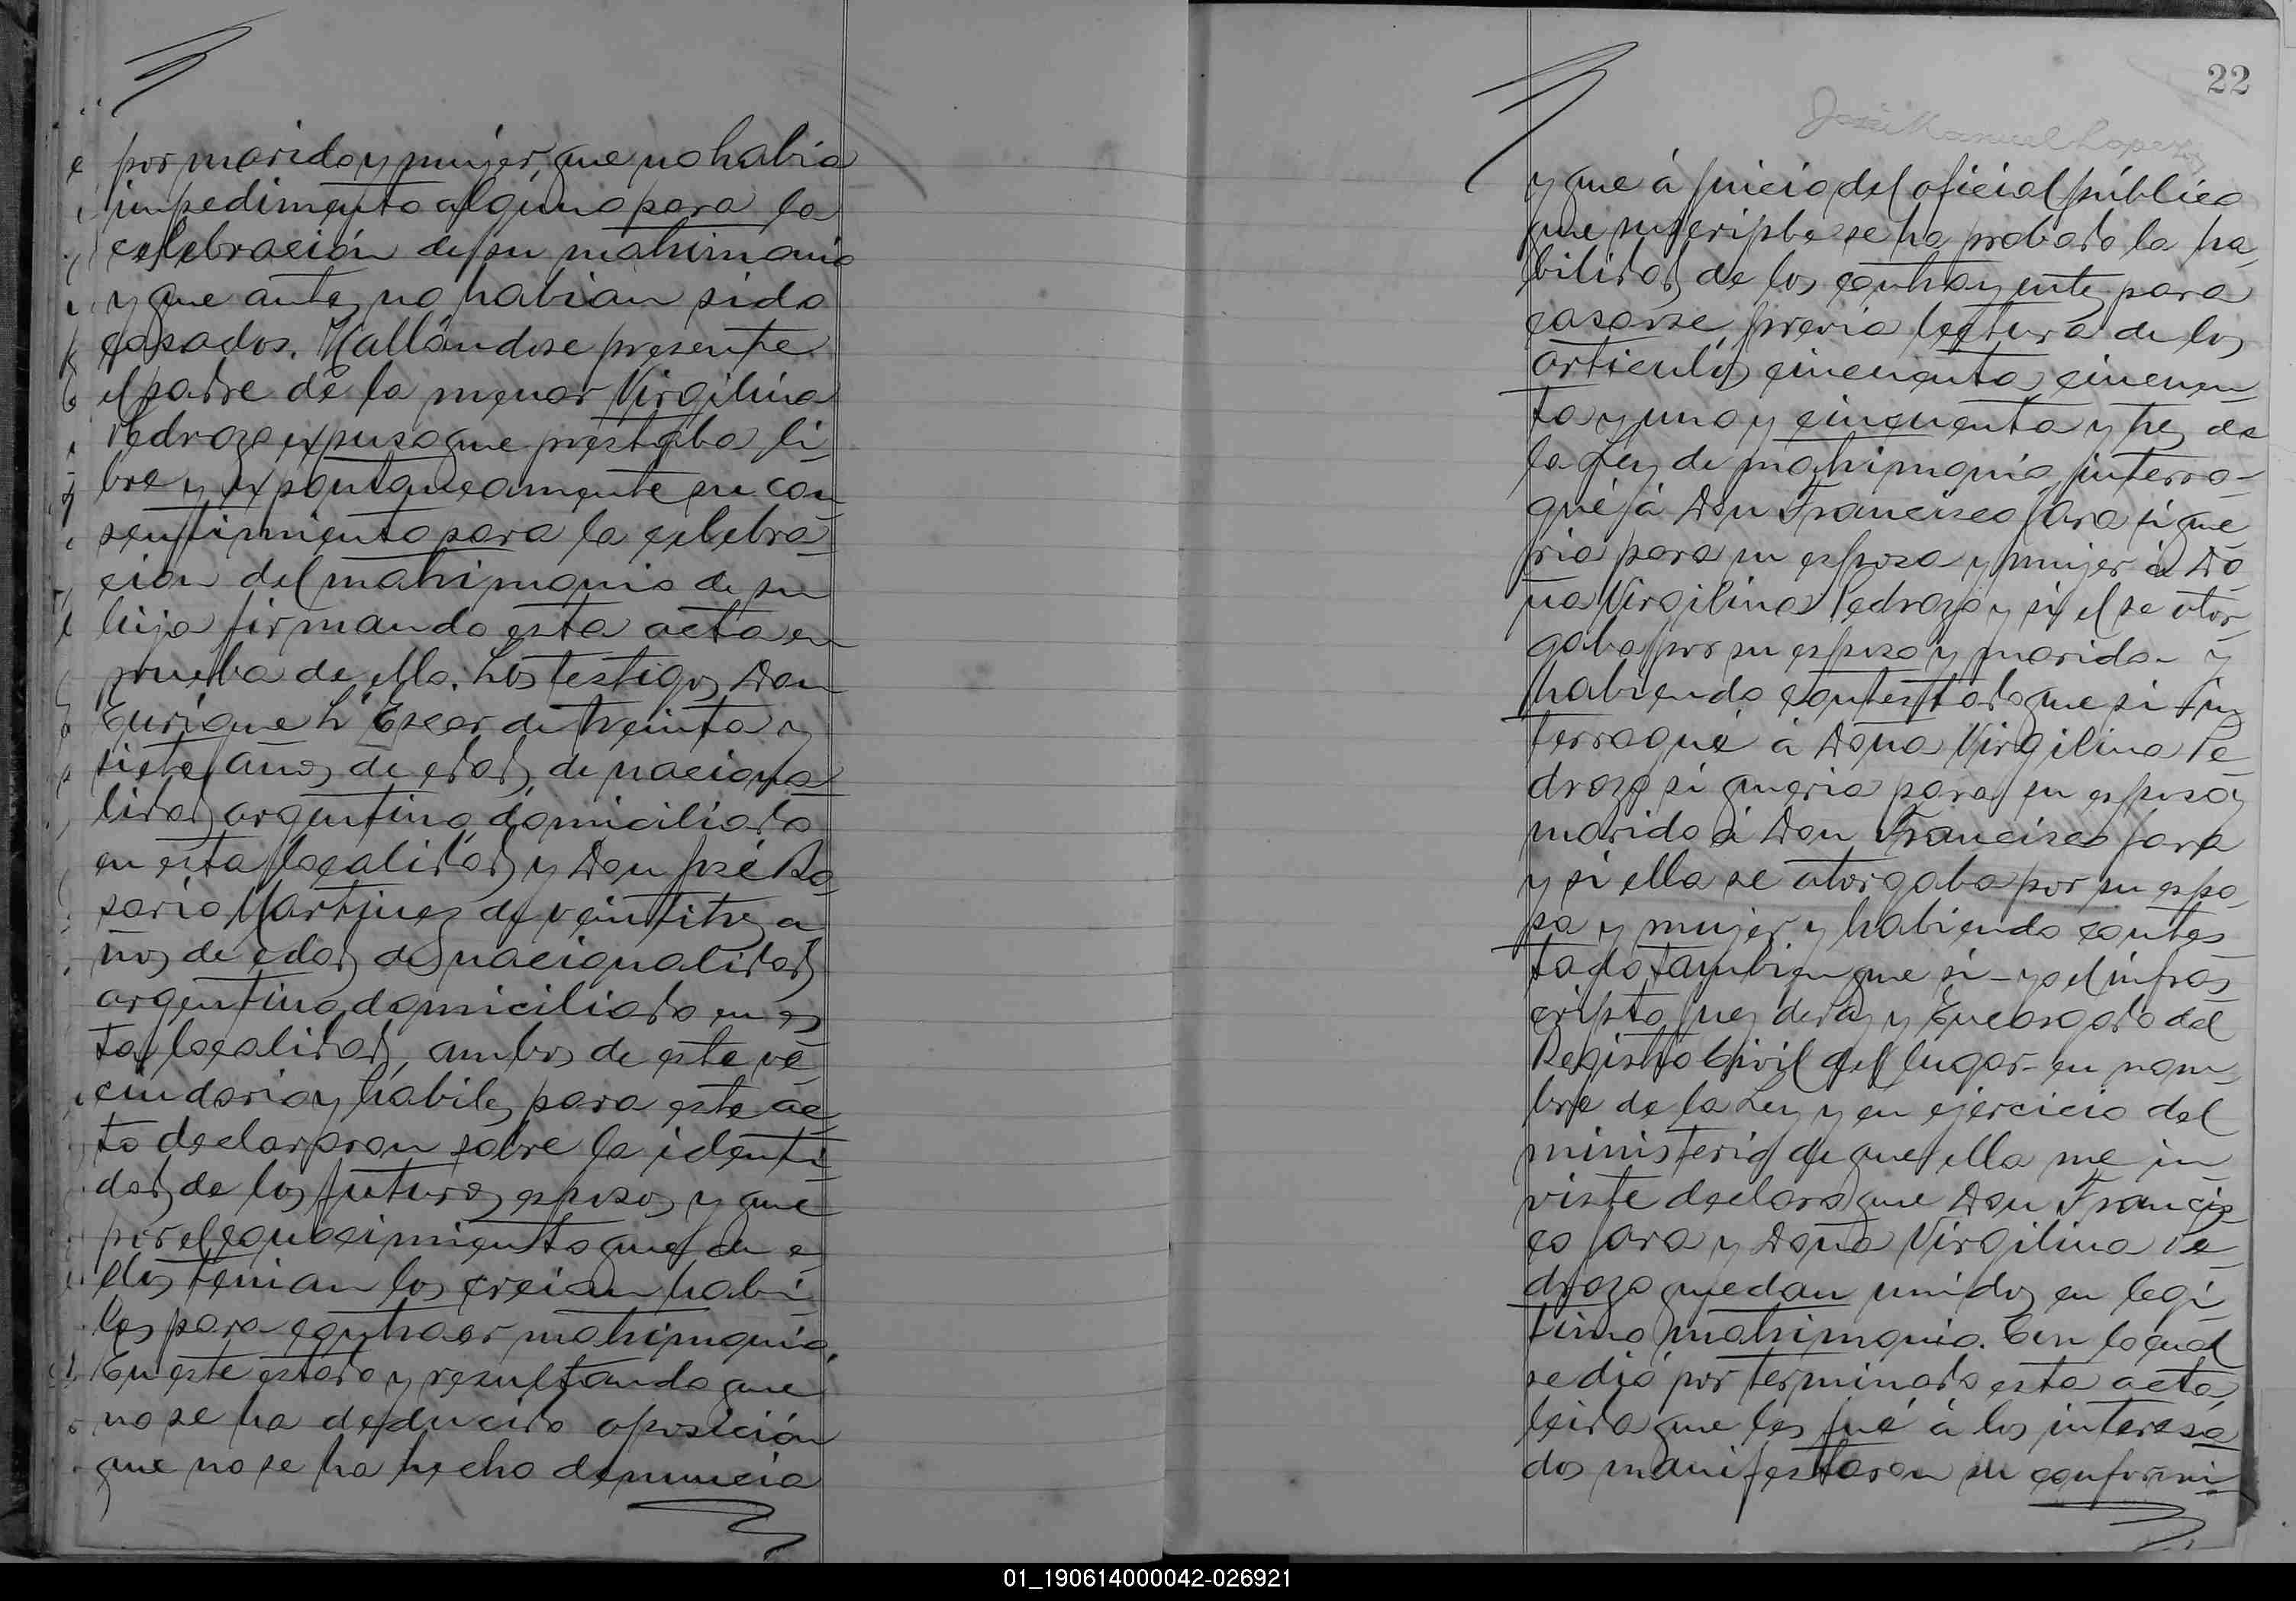 por marido y mujer, que no habia
impedimento alguno para la
celebración de su matrimonio
y que antes no habian sido
casados. Hallándose presente
el padre de la menor Virgilina
Pedrozo expuso que prestaba li
bre y expontaneamente su con
sentimiento para la celebra
ción del matrimonio de su
hija firmando esta acta en
prueba de ello. Los testigos Don
Enrique L' Escar de treinta y
siete años de edad, de naciona
lidad argentino domiciliado
en esta localidad y Don José Ro
sario Martinez de veintitres a
ños de edad de nacionalidad
argentino domiciliado en es
ta localidad, ambos de este ve
cindario y habiles para este ac
to declararon sobre la identi
dad de los futuros esposos y que
por el conocimiento que de e
llos tenian los creian habi
les para contraer matrimonio.
En este estado y resultando que
no se ha deducido oposición
que no se ha hecho denuncia
22
José Manuel Lopez
y que á juicio del oficial público
que suscripbe se ha probado la ha
bilidad de los contrayentes para
casarse previa lectura de los
articulos cincuenta, cincuen
ta y uno y cincuenta y tres de
la Ley de matrimonio, interro-
gué á Don Francisco Jara si que
ria para su esposa y mujer á Do
ña Virgilina Pedrozo y si el se otor
gaba por su esposo y marido - y
habiendo contestado que si in
terrogué á Doña Virgilina Pe
drozo si queria para su esposo y
marido á Don Francisco Jara
y si ella se otorgaba por su espo
sa y mujer y habiendo contes
tado tambien que si - yo el infras
cripto Juez de Paz y Encargado del
Registro Civil del lugar - en nom
bre de la Ley y en ejercicio del
ministerio de que ella me in
viste declaro que Don Francis
co Jara y Doña Virgilina Pe
drozo quedan unidos en legi
timo matrimonio. Con lo cual
se dió por terminado esta acta,
leida que les fué á los interesa
dos manifestaron su conformi
01_190614000042-026921